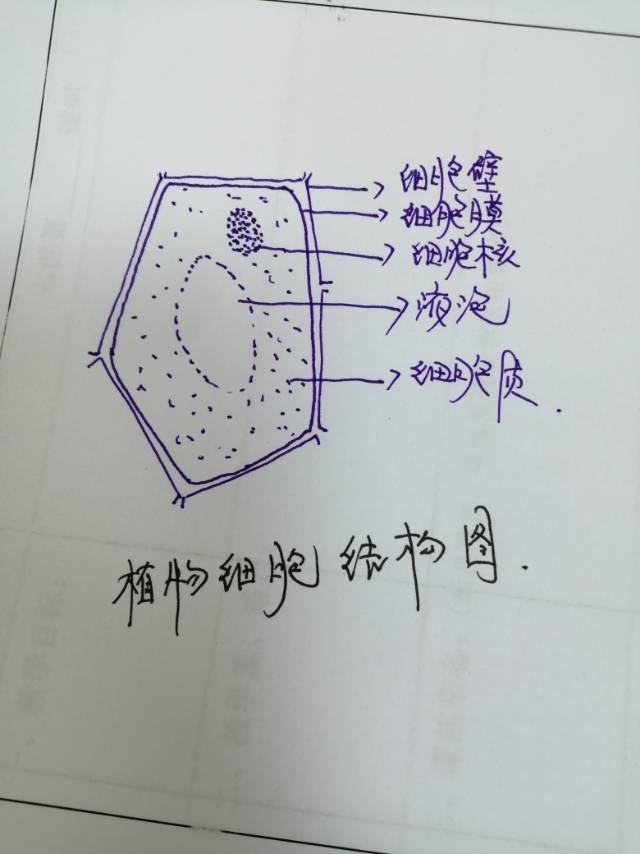 细胞壁
细胞膜
细胞核
液泡
细胞质.
植物细胞结构图.